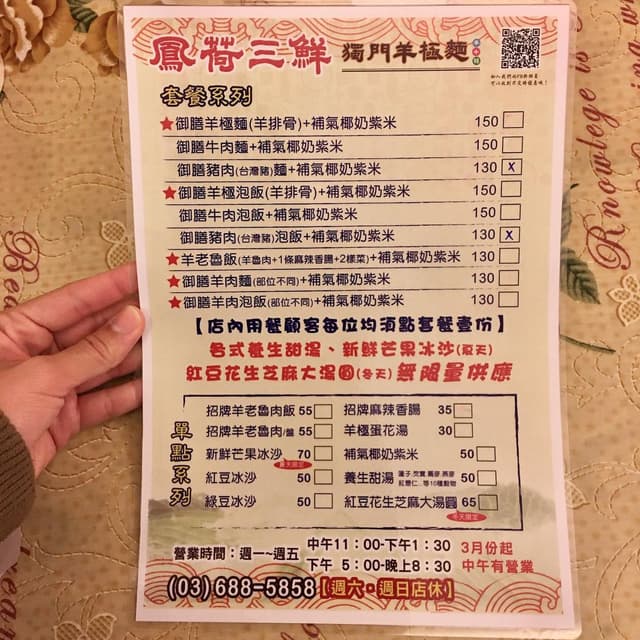 鳳荷三鮮 獨門羊極麵
套餐系列
★御膳羊極麵(羊排骨)+補氣椰奶紫米 150
御膳牛肉麵+補氣椰奶紫米 150
御膳豬肉(台灣豬)麵+補氣椰奶紫米 130 x
★御膳羊極泡飯(羊排骨)+補氣椰奶紫米 150
御膳牛肉泡飯+補氣椰奶紫米 150
御膳豬肉(台灣豬)泡飯+補氣椰奶紫米 130 x
★羊老魯飯(羊魯肉+1條麻辣香腸+2樣菜)+補氣椰奶紫米 130
★御膳羊肉麵(部位不同)+補氣椰奶紫米 130
★御膳羊肉泡飯(部位不同)+補氣椰奶紫米 130
【店內用餐顧客每位均須點套餐壹份】
各式養生甜湯、新鮮芒果冰沙(夏天)
紅豆花生芝麻大湯圓(冬天)無限量供應
單點系列
招牌羊老魯肉飯 55 招牌麻辣香腸 35
招牌羊老魯肉/盤 55 羊極蛋花湯 30
新鮮芒果冰沙 70 補氣椰奶紫米 50
夏天限定
紅豆冰沙 50 養生甜湯 50
綠豆冰沙 50 紅豆花生芝麻大湯圓 65
冬天限定
營業時間：週一~週五 中午11：00-下午1：30 3月份起
下午 5：00-晚上8：30 中午有營業
(03)688-5858【週六・週日店休】
Knowledge is